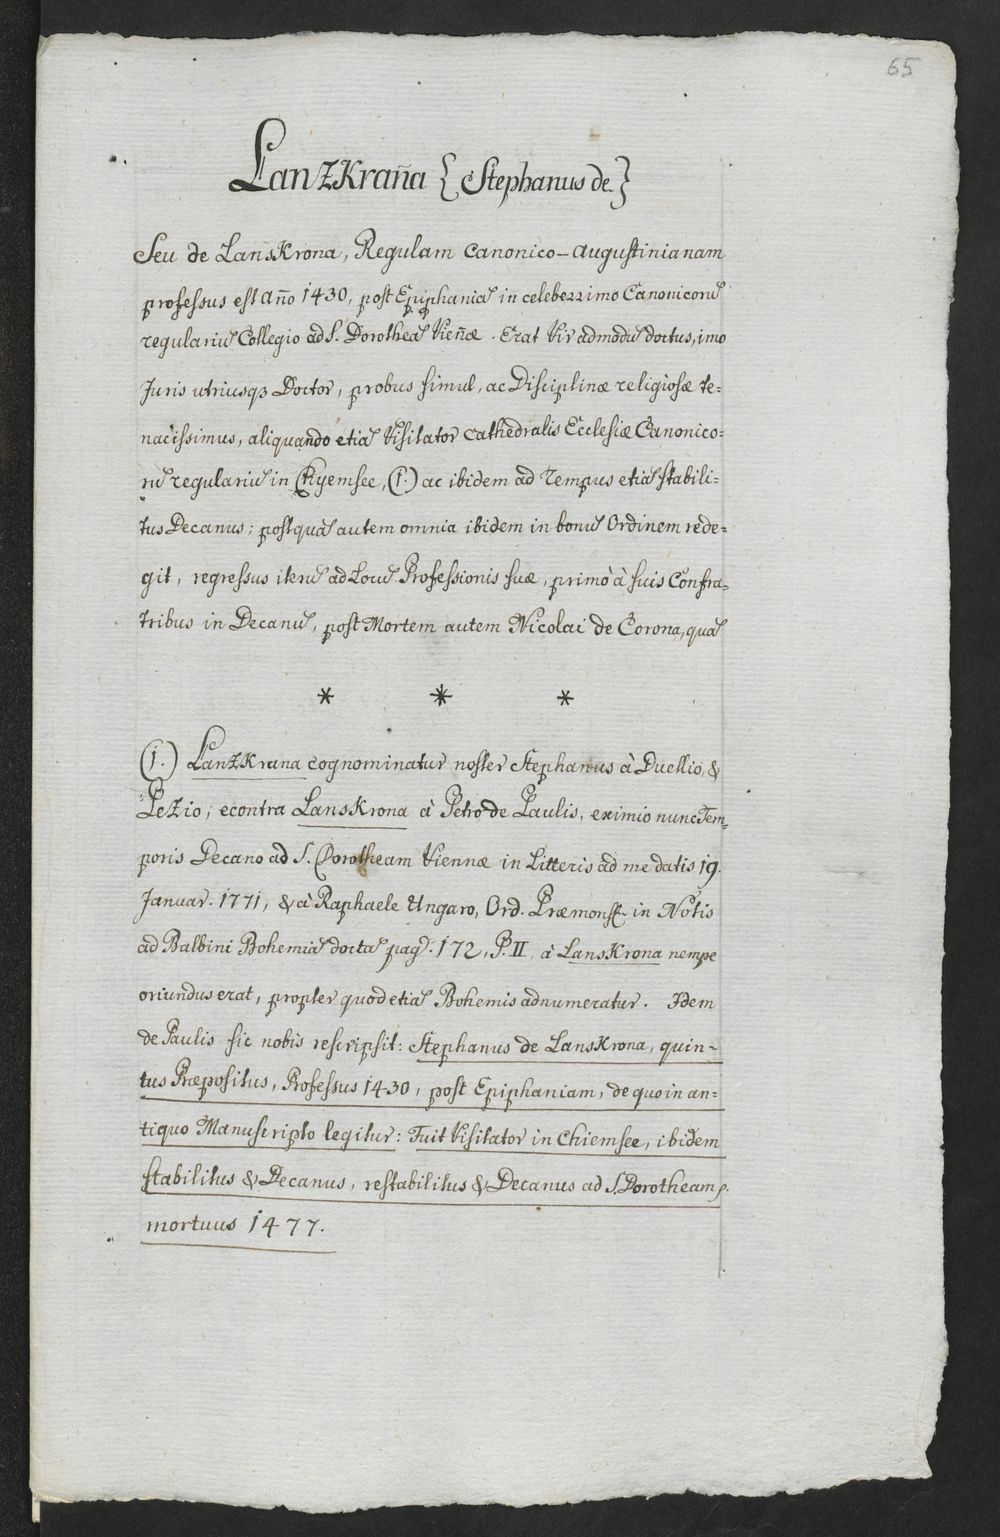 65
LanzKrana̅ {Stephanus de.}
Seu de LansKrona, Regulam Canonico-Augustinianam
professus est An̅o 1430, post Epiphania᷃ in celeberrimo Canonicoru᷃
regulariu᷃ Collegio ad S. Dorothea᷃ Vien̅æ. Erat Vir admodu᷃ doctus, imo
Juris utriusqȝ Doctor, probus simul, ac Disciplinæ religiosæ te=
nacissimus, aliquando etia᷃ Visitator Cathedralis Ecclesiæ Canonico=
ru᷃ regulariu᷃ in Chyemsee, (1.) ac ibidem ad Tempus etia᷃ stabili=
tus Decanus; postqua᷃ autem omnia ibidem in bonu᷃ Ordinem rede=
git, regressus iteru᷃ ad Locu᷃ Professionis suæ, primò à suis Confra=
tribus in Decanu᷃, post Mortem autem Nicolai de Corona, qua᷃
* * *
(1.) LanzKrana cognominatur noster Stephanus à Duellio, &
Pezio; econtra LansKrona à Petro de Paulis, eximio nunc Tem=
poris Decano ad S. Dorotheam Viennæ in Litteris ad me datis 19.
Januar. 1771, & à Raphaele Ungaro, Ord. Præmonst. in Notis
ad Balbini Bohemia᷃ docta᷃ pag. 172, P. II, à LansKrona nempe
oriundus erat, propter quod etia᷃ Bohemis adnumeratur. Idem
de Paulis sic nobis rescripsit: Stephanus de LansKrona, quin=
tus Præpositus, Professus 1430, post Epiphaniam, de quo in an=
tiquo Manuscripto legitur: Fuit Visitator in Chiemsee, ibidem
stabilitus & Decanus, restabilitus & Decanus ad S. Dorotheam,
mortuus 1477.